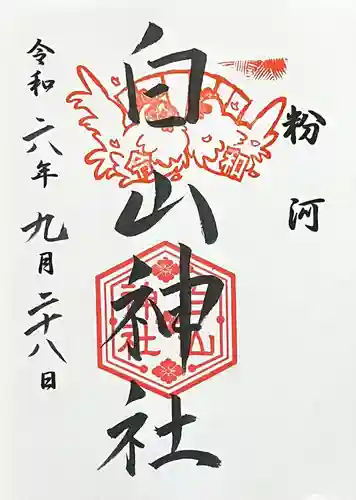 粉河
白山神社
令和六年九月二十八日
令和
白山神社